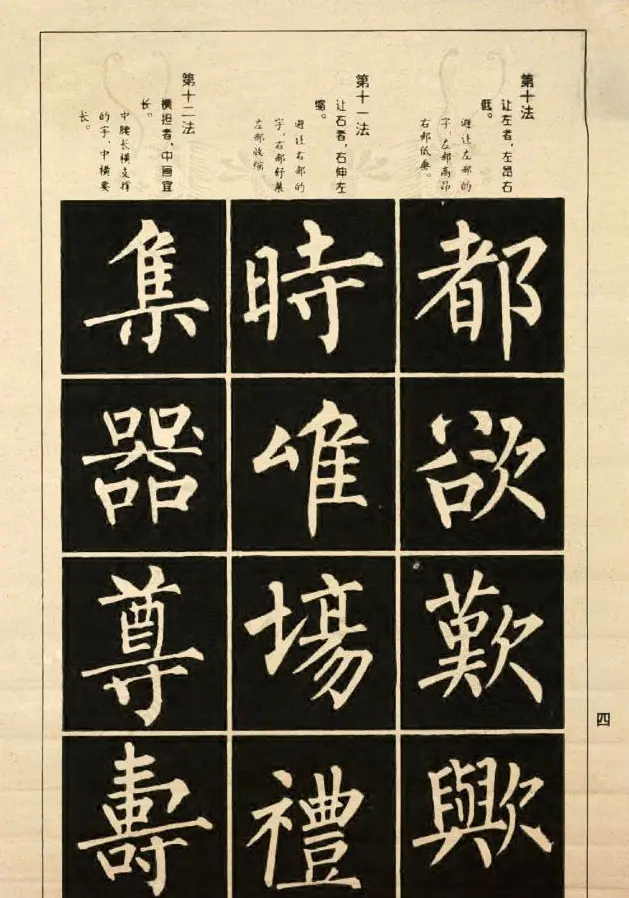 第十法
让左者，左昂右
低。
避让左部的
字，左部高昂
右部低垂。
都
欲
歎
歟
第十一法
让右者，右伸左
缩。
避让右部的
字，右部舒展
左部收缩
時
唯
場
禮
第十二法
横担者，中画宜
长。
中腰长横支撑
的字，中横要
长。
集
器
尊
壽
四